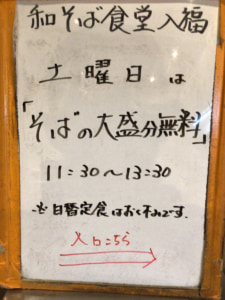 和そば食堂入福
土曜日は
「そばの大盛分無料」
11:30〜13:30
※日替定食はお休みです。
入口こちら